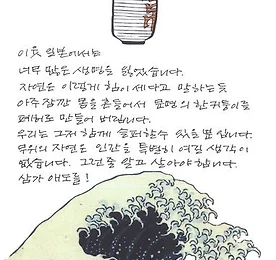 이웃 일본에서는
너무 많은 생명을 잃었습니다.
자연은 이렇게 힘이 세다고 말하는듯
아주 잠깐 몸을 흔들어서 문명의 한 귀퉁이를
폐허로 만들어 버립니다.
우리는 그저 함께 슬퍼할수 있을 뿐 입니다.
무위의 자연은 인간을 특별히 여길 생각이
없습니다. 그런줄 알고 살아야 합니다.
삼가 애도를!